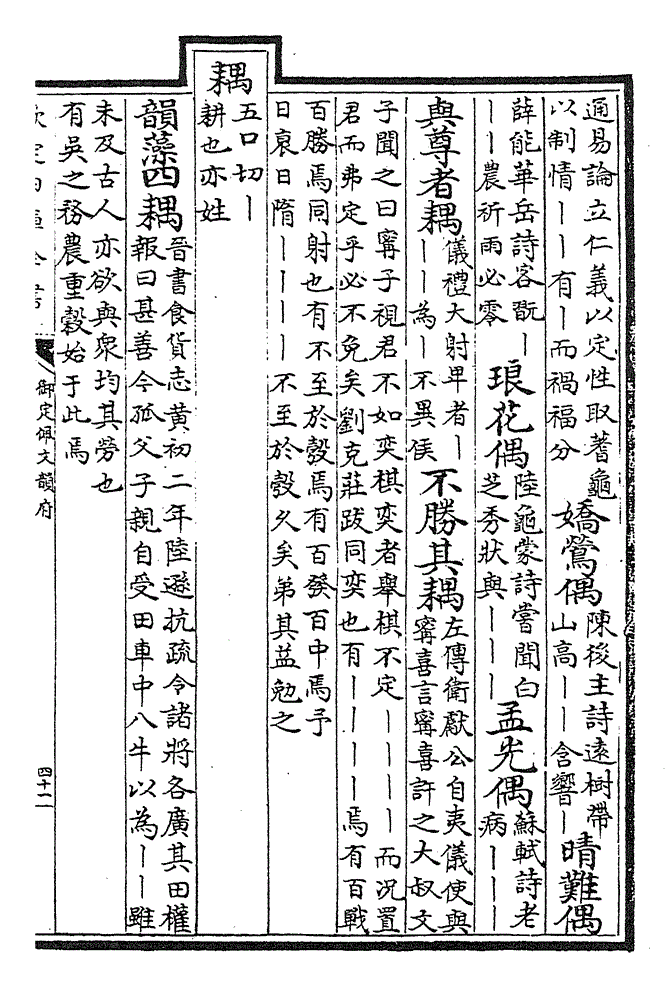 通易論立仁義以定性取蓍龜
以制情丨丨有丨而禍福分
嬌鶯偶
陳後主詩遠樹帶
山高丨丨含響丨
晴難偶
薛能華岳詩客翫丨
丨丨農祈雨必零
琅花偶
陸龜蒙詩嘗聞白
芝秀狀與丨丨丨
孟光偶
蘇軾詩老
病丨丨丨
與尊者耦
儀禮大射卑者丨
丨丨為丨不異侯
不勝其耦
左傳衛獻公自夷儀使與
甯喜言甯喜許之大叔文
子聞之曰甯子視君不如奕棋奕者舉棋不定丨丨丨丨而況置
君而弗定乎必不免矣劉克莊跋同奕也有丨丨丨丨焉有百戰
百勝焉同射也有不至於彀焉有百發百中焉予
日哀日隋丨丨丨丨不至於彀久矣弟其益勉之
耦
五口切丨
耕也亦姓
韻藻四耦
晉書食貨志黄初二年陸遜抗疏令諸將各廣其田權
報曰甚善今孤父子親自受田車中八牛以為丨丨雖
未及古人亦欲與衆均其勞也
有吳之務農重穀始于此焉
欽定四庫全書
御定佩文韻府
四十一